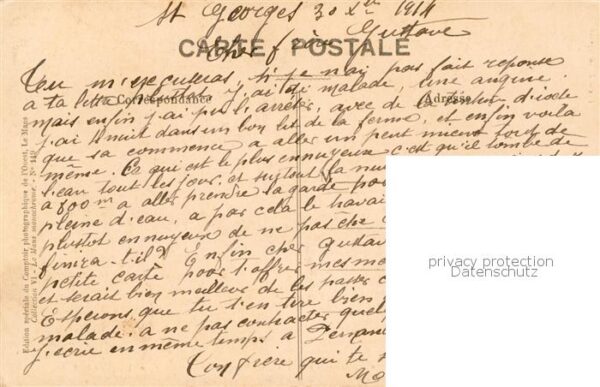 St Georges 30 Xbre 1914
CARTE POSTALE
Cher frère Gustave
Tu m'excuseras, si je n'ai pas fait réponse
a ta lettre plutot j'ai été malade, une angine
Correspondance
Adresse
mais enfin j'ai pu l'arrêter, avec de la teinture d'iode
j'ai nuit dans un bon lit de la ferme, et enfin voila
que sa commence a aller un peut mieux tout de
même. Ce qui est le plus ennuyeux c'est qu'il tombe de
l'eau tout les jour, et surtout la nu
a 800m a aller prendre la garde pour
pleine d'eau, a par cela le travai
plustot ennuyeux de ne pas
finira-t-il? Enfin cher Gustav
petite carte pour t'offrir mes me
et serais bien meilleur de les passer
Esperons que tu s'en tire bien
malade, a ne pas contracter quel
J'ecrie en même temps a Fernan
Ton frere qui te
Edition spéciale du Comptoir photographique de l'Ouest, Le Mans
Collection VI - Le Mans monochrome. - No 149
privacy protection
Datenschutz